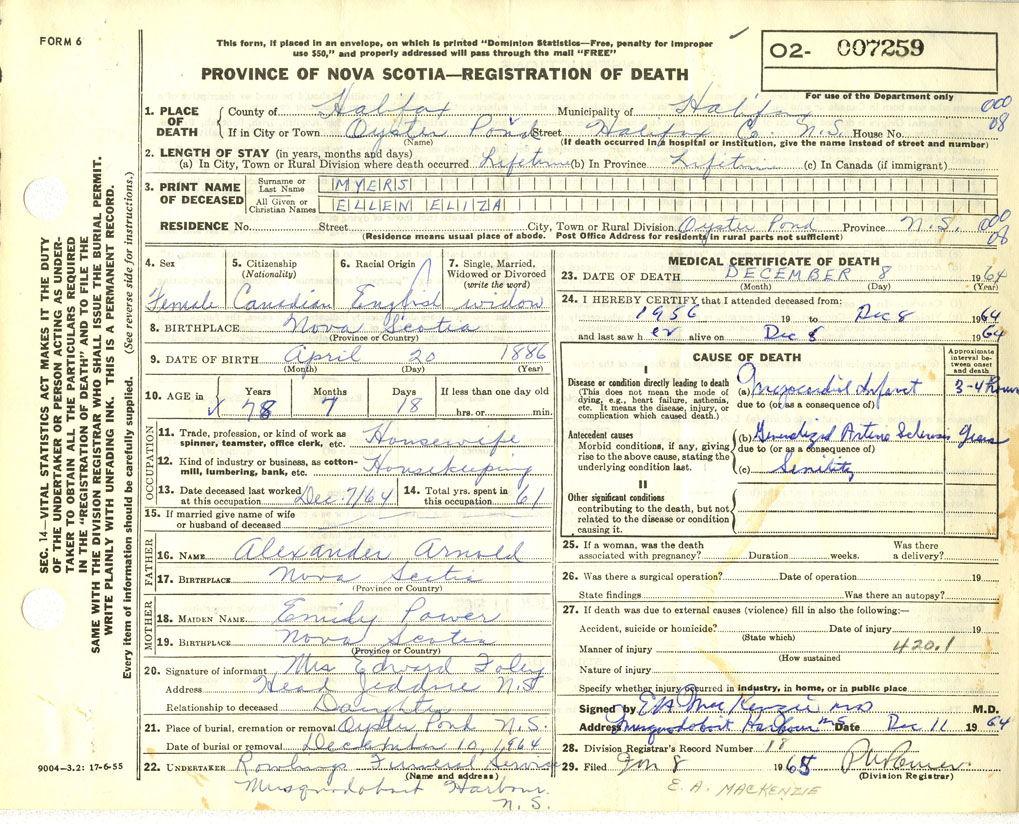 FORM 6
This form, if placed in an envelope, on which is printed "Dominion Statistics—Free, penalty for improper
use $50," and properly addressed will pass through the mail "FREE"
O2- 007259
PROVINCE OF NOVA SCOTIA—REGISTRATION OF DEATH
For use of the Department only
1. PLACE OF DEATH County of Halifax Municipality of Halifax 000
If in City or Town Oyster Pond Street Halifax Co. N.S. House No. 08
(Name) (If death occurred in a hospital or institution, give the name instead of street and number)
2. LENGTH OF STAY (in years, months and days)
(a) In City, Town or Rural Division where death occurred Lifetime (b) In Province Lifetime (c) In Canada (if immigrant)
3. PRINT NAME OF DECEASED Surname or Last Name MYERS
All Given or Christian Names ELLEN ELIZA
RESIDENCE No. Street City, Town or Rural Division Oyster Pond Province N.S. 000 08
(Residence means usual place of abode. Post Office Address for residents in rural parts not sufficient)
SEC. 14—VITAL STATISTICS ACT MAKES IT THE DUTY
OF THE UNDERTAKER OR PERSON ACTING AS UNDER-
TAKER TO OBTAIN ALL THE PARTICULARS REQUIRED
IN THE "REGISTRATION OF DEATH" AND TO FILE THE
SAME WITH THE DIVISION REGISTRAR WHO SHALL ISSUE THE BURIAL PERMIT.
WRITE PLAINLY WITH UNFADING INK. THIS IS A PERMANENT RECORD.
Every item of information should be carefully supplied. (See reverse side for instructions.)
4. Sex 5. Citizenship 6. Racial Origin 7. Single, Married,
(Nationality) Widowed or Divorced
(write the word)
Female Canadian English widow
8. BIRTHPLACE Nova Scotia
(Province or Country)
9. DATE OF BIRTH April 20 1886
(Month) (Day) (Year)
10. AGE in Years Months Days If less than one day old
78 7 18 hrs. or min.
OCCUPATION
11. Trade, profession, or kind of work as
spinner, teamster, office clerk, etc. Housewife
12. Kind of industry or business, as cotton-
mill, lumbering, bank, etc. Housekeeping
13. Date deceased last worked at this occupation Dec. 7/64 14. Total yrs. spent in this occupation 61
15. If married give name of wife
or husband of deceased
FATHER
16. NAME Alexander Arnold
17. BIRTHPLACE Nova Scotia
(Province or Country)
MOTHER
18. MAIDEN NAME Emily Power
19. BIRTHPLACE Nova Scotia
(Province or Country)
20. Signature of informant Mrs Edward Foley
Address Head Jeddore N.S
Relationship to deceased Daughter
21. Place of burial, cremation or removal Oyster Pond N.S.
Date of burial or removal December 10, 1964
22. UNDERTAKER Rowlings Funeral Service
(Name and address)
Musquodoboit Harbour.
N.S.
9004—3.2: 17-6-55
MEDICAL CERTIFICATE OF DEATH
23. DATE OF DEATH DECEMBER 8 1964
(Month) (Day) (Year)
24. I HEREBY CERTIFY that I attended deceased from:
1956 19 to Dec 8 1964
and last saw her alive on Dec 8 1964
CAUSE OF DEATH
Approximate
interval be-
tween onset
and death
I
Disease or condition directly leading to death
(This does not mean the mode of
dying, e.g., heart failure, asthenia,
etc. It means the disease, injury, or
complication which caused death.)
(a) Myocardial Infarct 3-4 hours
due to (or as a consequence of)
Antecedent causes
Morbid conditions, if any, giving
rise to the above cause, stating the
underlying condition last.
(b) Generalized Arterio Sclerosis years
due to (or as a consequence of)
(c) Senility
II
Other significant conditions
contributing to the death, but not
related to the disease or condition
causing it.
25. If a woman, was the death Was there
associated with pregnancy? Duration weeks. a delivery?
26. Was there a surgical operation? Date of operation 19
State findings Was there an autopsy?
27. If death was due to external causes (violence) fill in also the following:—
Accident, suicide or homicide? Date of injury 19
(State which)
Manner of injury 420.1
(How sustained
Nature of injury
Specify whether injury occurred in industry, in home, or in public place
Signed by EA MacKenzie MD M.D.
Address Musquodoboit Harbour NS Date Dec 11 1964
28. Division Registrar's Record Number 18
29. Filed Jan 8 1965
(Division Registrar)
E. A. MACKENZIE